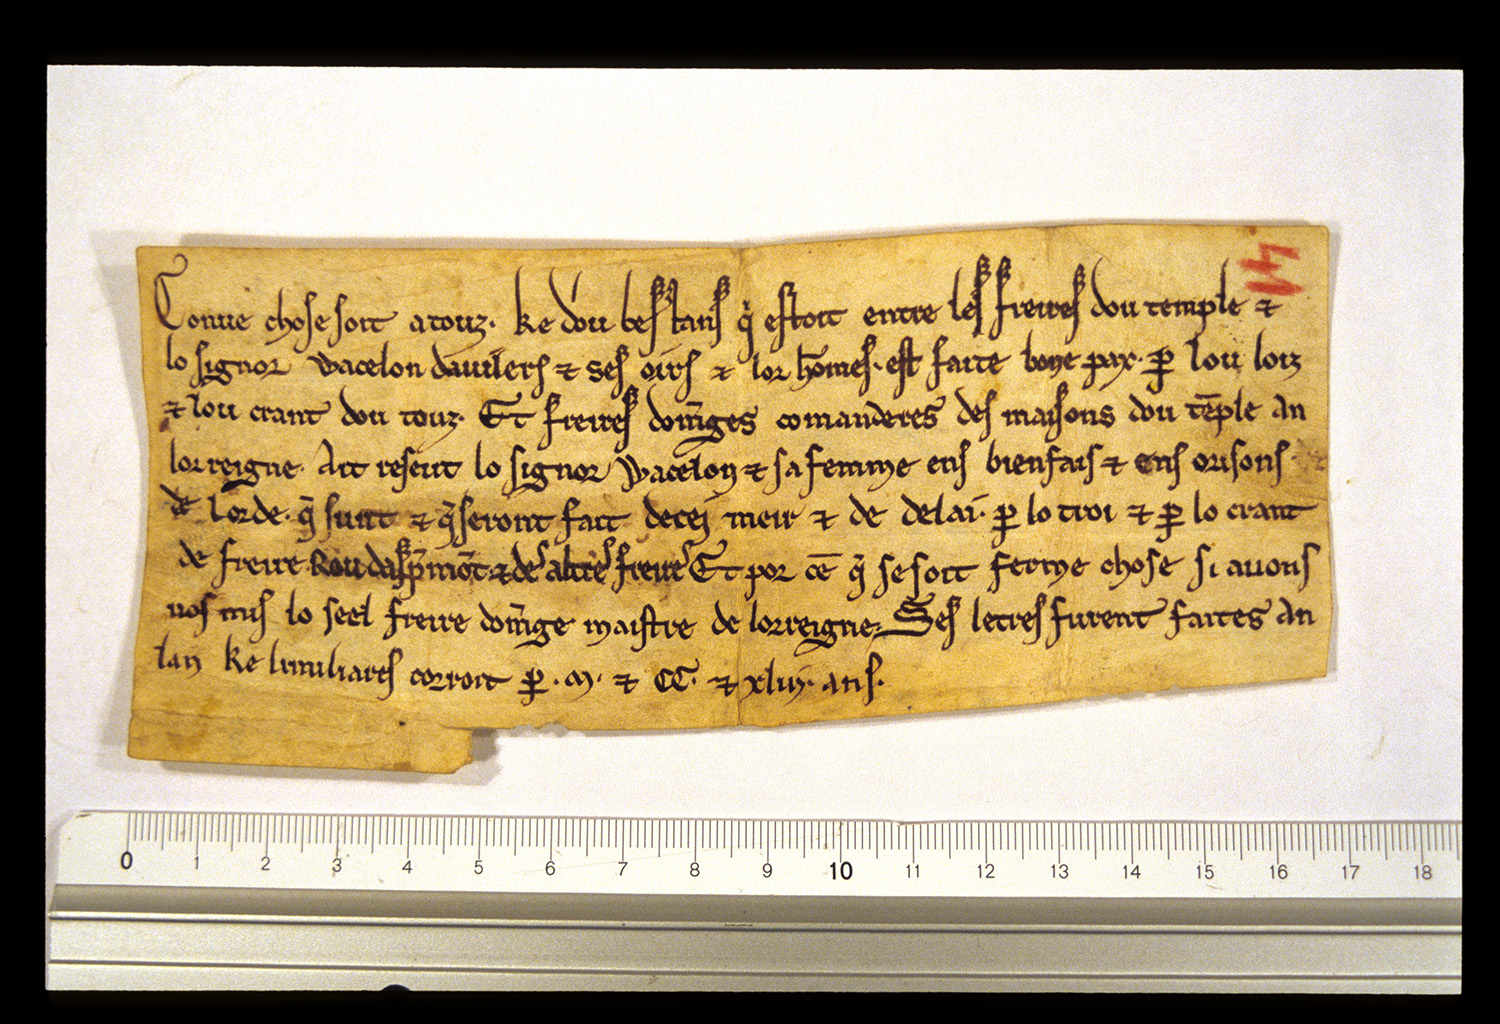 Conue chose soit a touz. ke dou bestans q̄ estoit entre les freires dou temple ⁊
lo signor Wacelon dauilers ⁊ ses oirs ⁊ lor hōmes. est faite bone pax. ꝑ lou louz
⁊ lou crant dou touz. Et freires domı̄ges comanderes des maisons dou tēple an
lorreigne. Ait reseut lo signor Wacelon ⁊ sa femme ens bienfais ⁊ ens orisons
de lorde. q̄ sunt ⁊ q̄ seront fait decej meir ⁊ de delai. ꝑ lo troi ⁊ ꝑ lo crant
de freire daspᵉmōt ⁊ des altres freires Et por ce q̄ se soit ferme chose si auons
nos mis lo seel freire domı̄ge maistre de lorreigne. Ses letres furent faites an
lan ke li miliares corroit ꝑ .m. ⁊ CC. ⁊ xliij. ans.
0 1 2 3 4 5 6 7 8 9 10 11 12 13 14 15 16 17 18